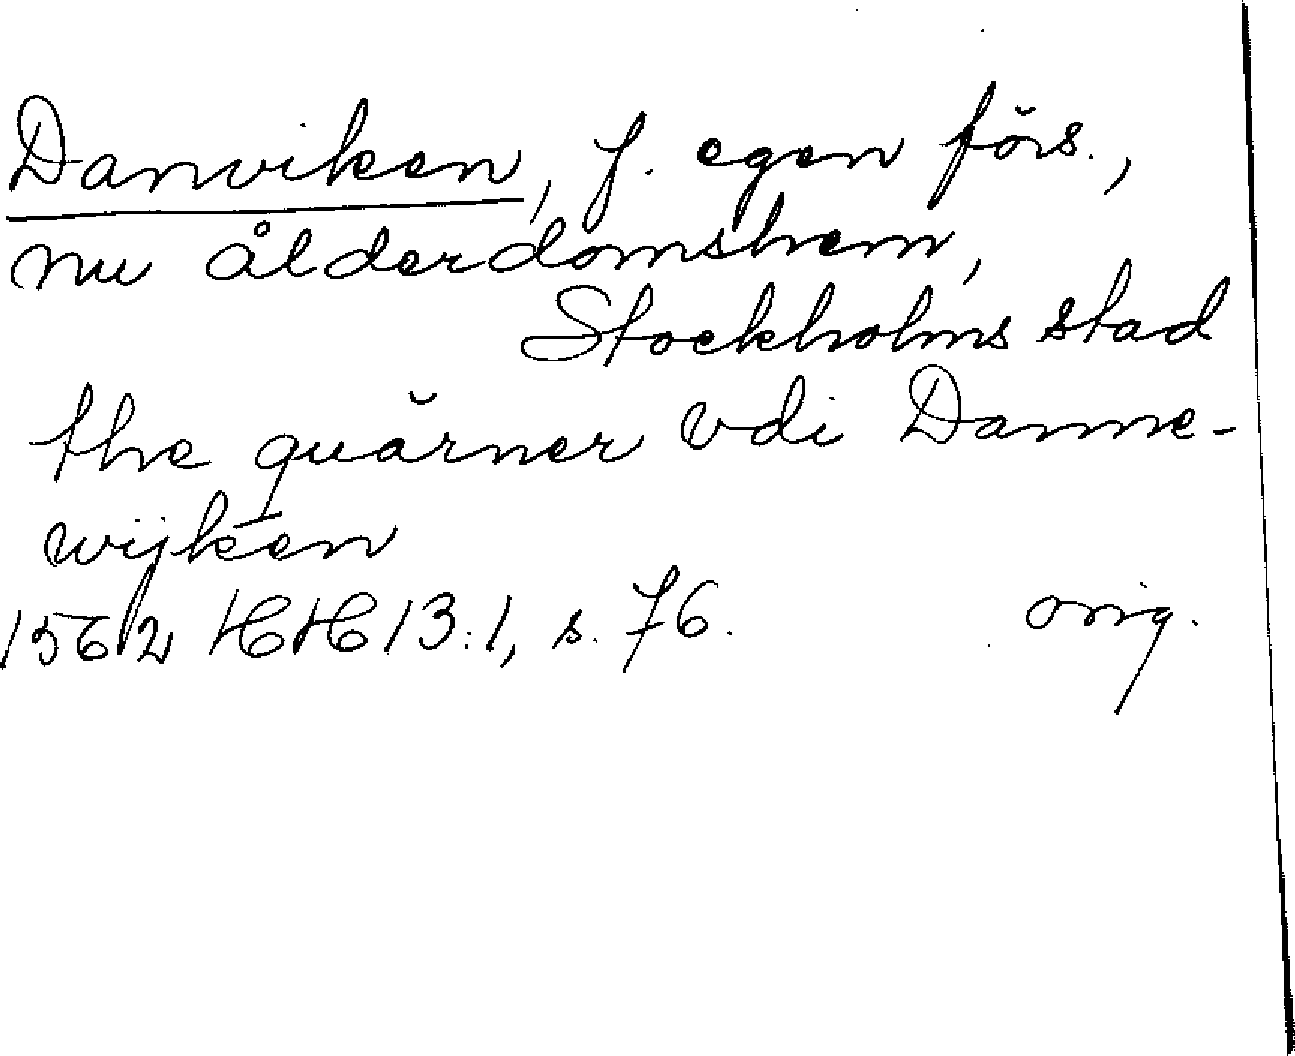 Danviken, f. egen förs.,
nu ålderdomshem,
Stockholms stad
the quärner vdi Danne-
wijken
1562 HH 13:1, s. 76. orig.